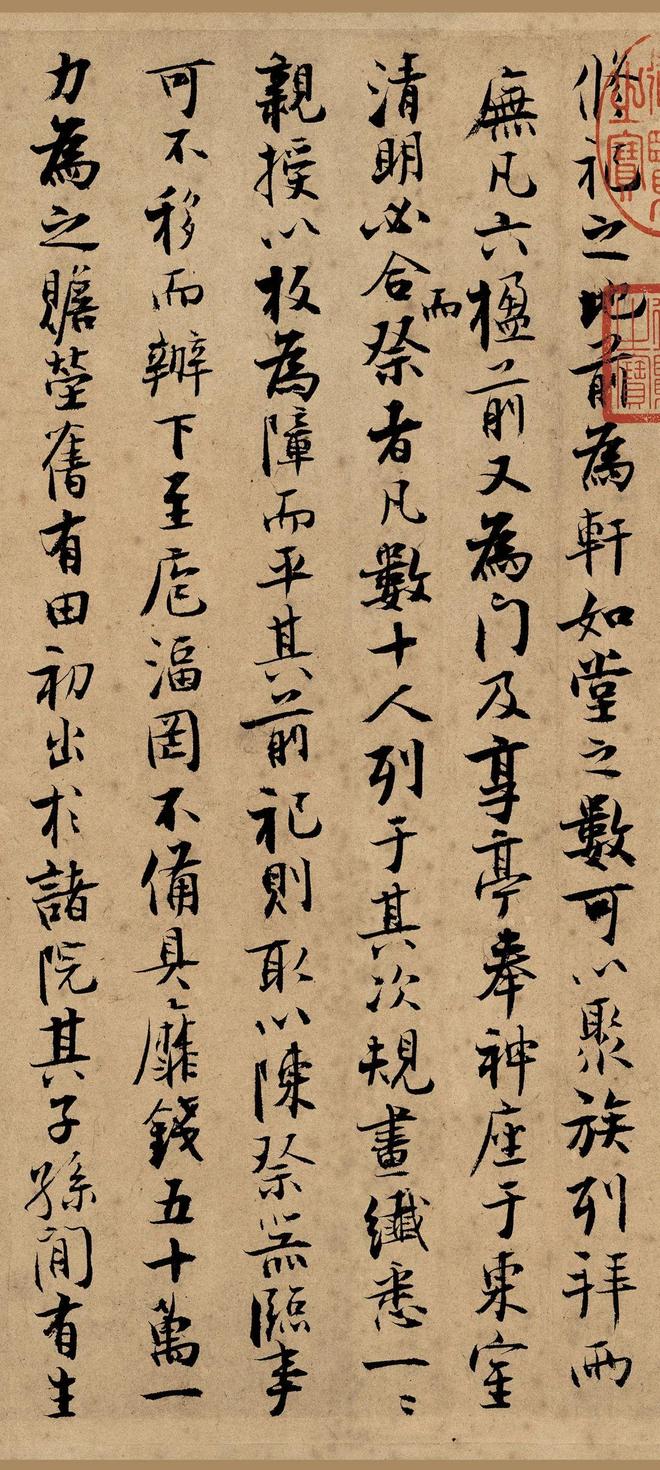 修祀之地前為軒如堂之數可以聚族列拜兩
廡凡六楹前又為門及享亭奉神座于東室
清明必合祭而者凡數十人列于其次規畫纖悉一〻
親授以板為障而平其前祀則取以陳祭器臨事
可不移而辦下至庖湢罔不備具〻靡錢五十萬一
力為之贍塋舊有田初出於諸院其子孫閒有生